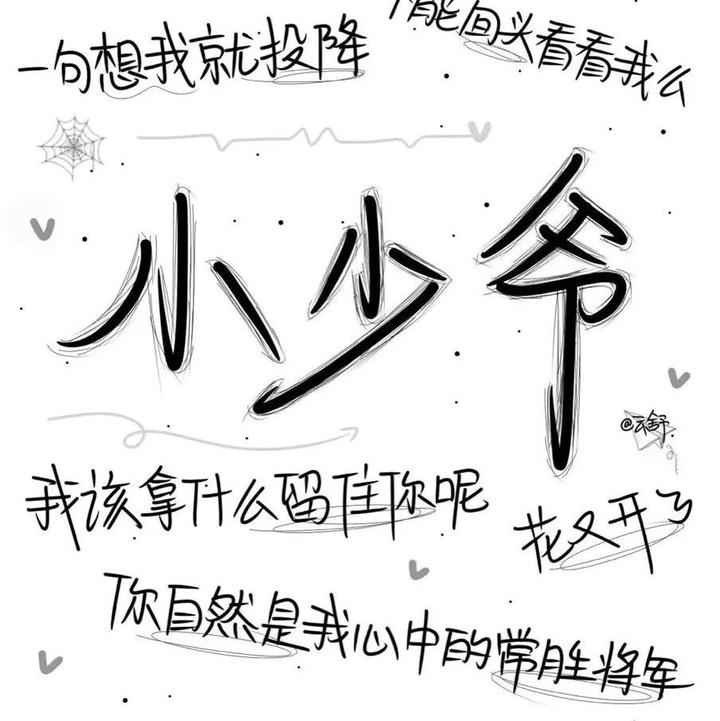 一句想我就投降
能回头看看我么
小少爷
@云舒.
我该拿什么留住你呢
花又开了
你自然是我心中的常胜将军